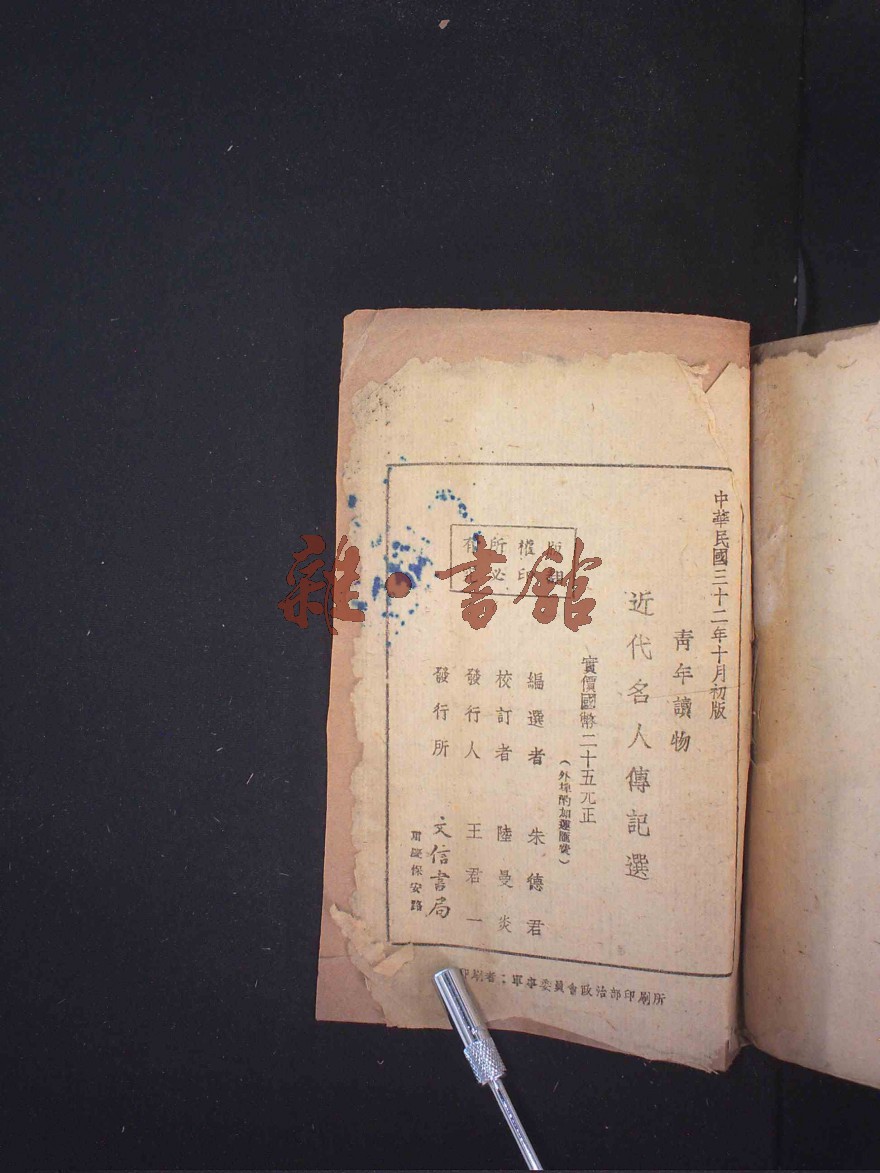 中華民國三十二年十月初版
青年讀物
近代名人傳記選
實價國幣二十五元正
（外埠酌加運匯費）
編選者 朱德君
校訂者 陸曼炎
發行人 王君一
發行所 文信書局
重慶保安路
版權所有
印必
印刷者：軍事委員會政治部印刷所
雜·書館